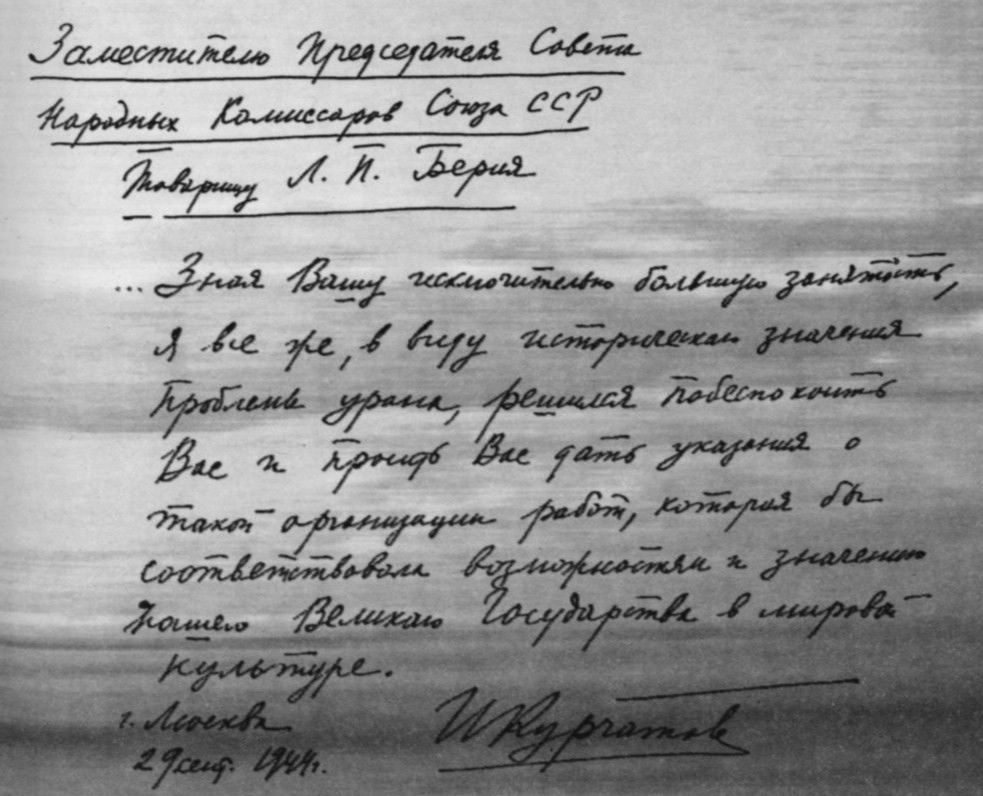 Заместителю Председателя Совета
Народных Комиссаров Союза ССР
Товарищу Л. П. Берия
... Зная Вашу исключительно большую занятость,
я все же, в виду исторического значения
проблемы урана, решился побеспокоить
Вас и просить Вас дать указания о
такой организации работ, которая бы
соответствовала возможностям и значению
нашего Великого Государства в мировой
культуре.
г. Москва
29 сент. 1944 г.
И Курчатов